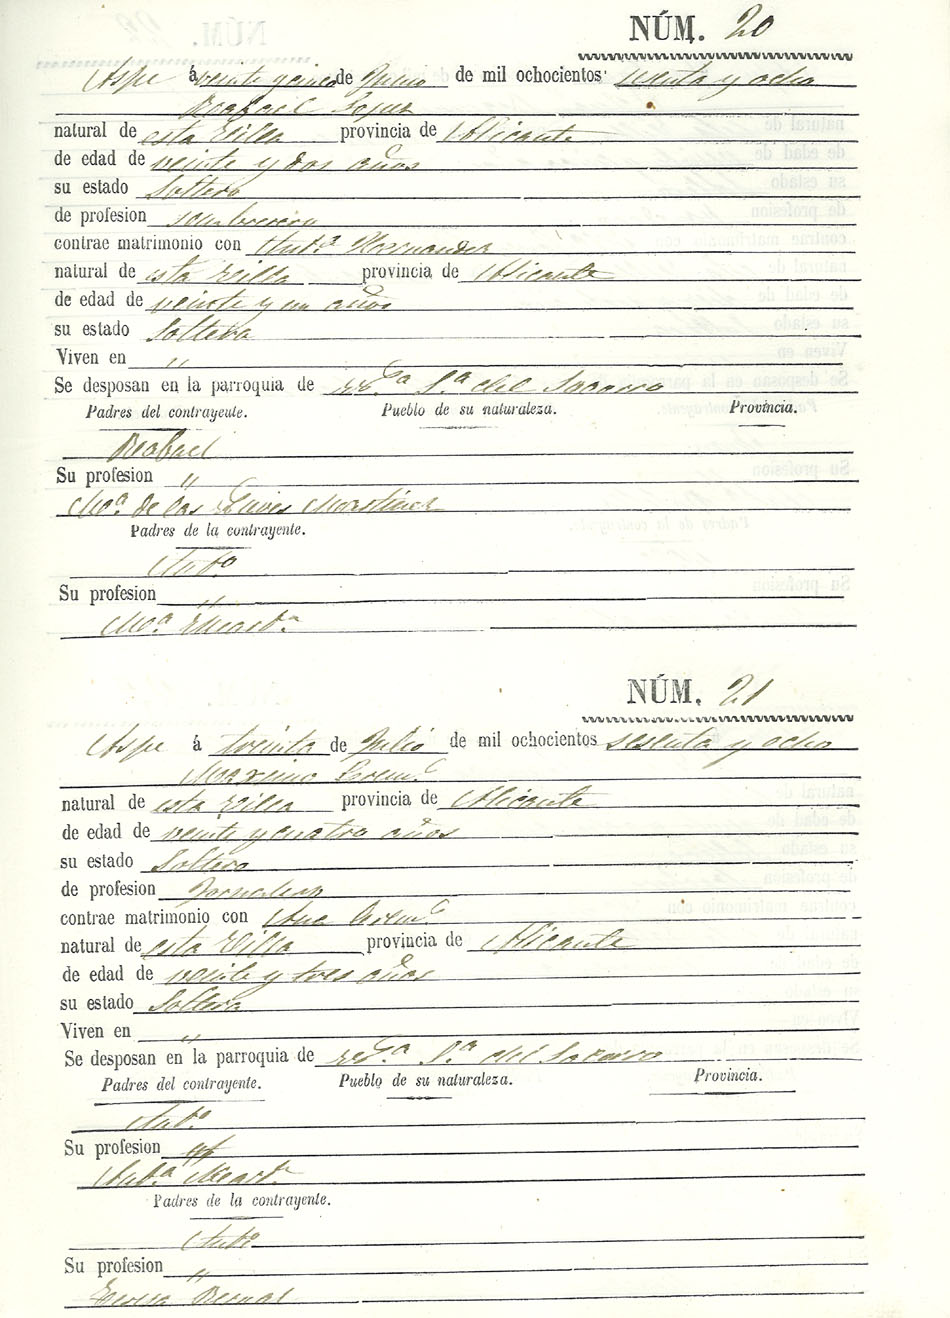 NÚM. 20
Aspe á veinte y cinco de Junio de mil ochocientos sesenta y ocho
Rafael Lopez
natural de esta Villa provincia de Alicante
de edad de veinte y dos años
su estado Soltero
de profesion sombrerero
contrae matrimonio con Antª Hernandez
natural de esta Villa provincia de Alicante
de edad de veinte y un años
su estado Soltera
Viven en "
Se desposan en la parroquia de Sª del Socorro
Padres del contrayente. Pueblo de su naturaleza. Provincia.
Rafael
Su profesion "
Mª de las Nieves Martinez
Padres de la contrayente.
Antº
Su profesion "
Mª
NÚM. 21
Aspe á treinta de Julio de mil ochocientos sesenta y ocho
Maximo
natural de esta Villa provincia de Alicante
de edad de veinte y cuatro años
su estado Soltero
de profesion Jornalero
contrae matrimonio con Ana
natural de esta Villa provincia de Alicante
de edad de veinte y tres años
su estado Soltera
Viven en "
Se desposan en la parroquia de Sª del Socorro
Padres del contrayente. Pueblo de su naturaleza. Provincia.
Antº
Su profesion
Antª
Padres de la contrayente.
Antº
Su profesion "
Teresa Bernal